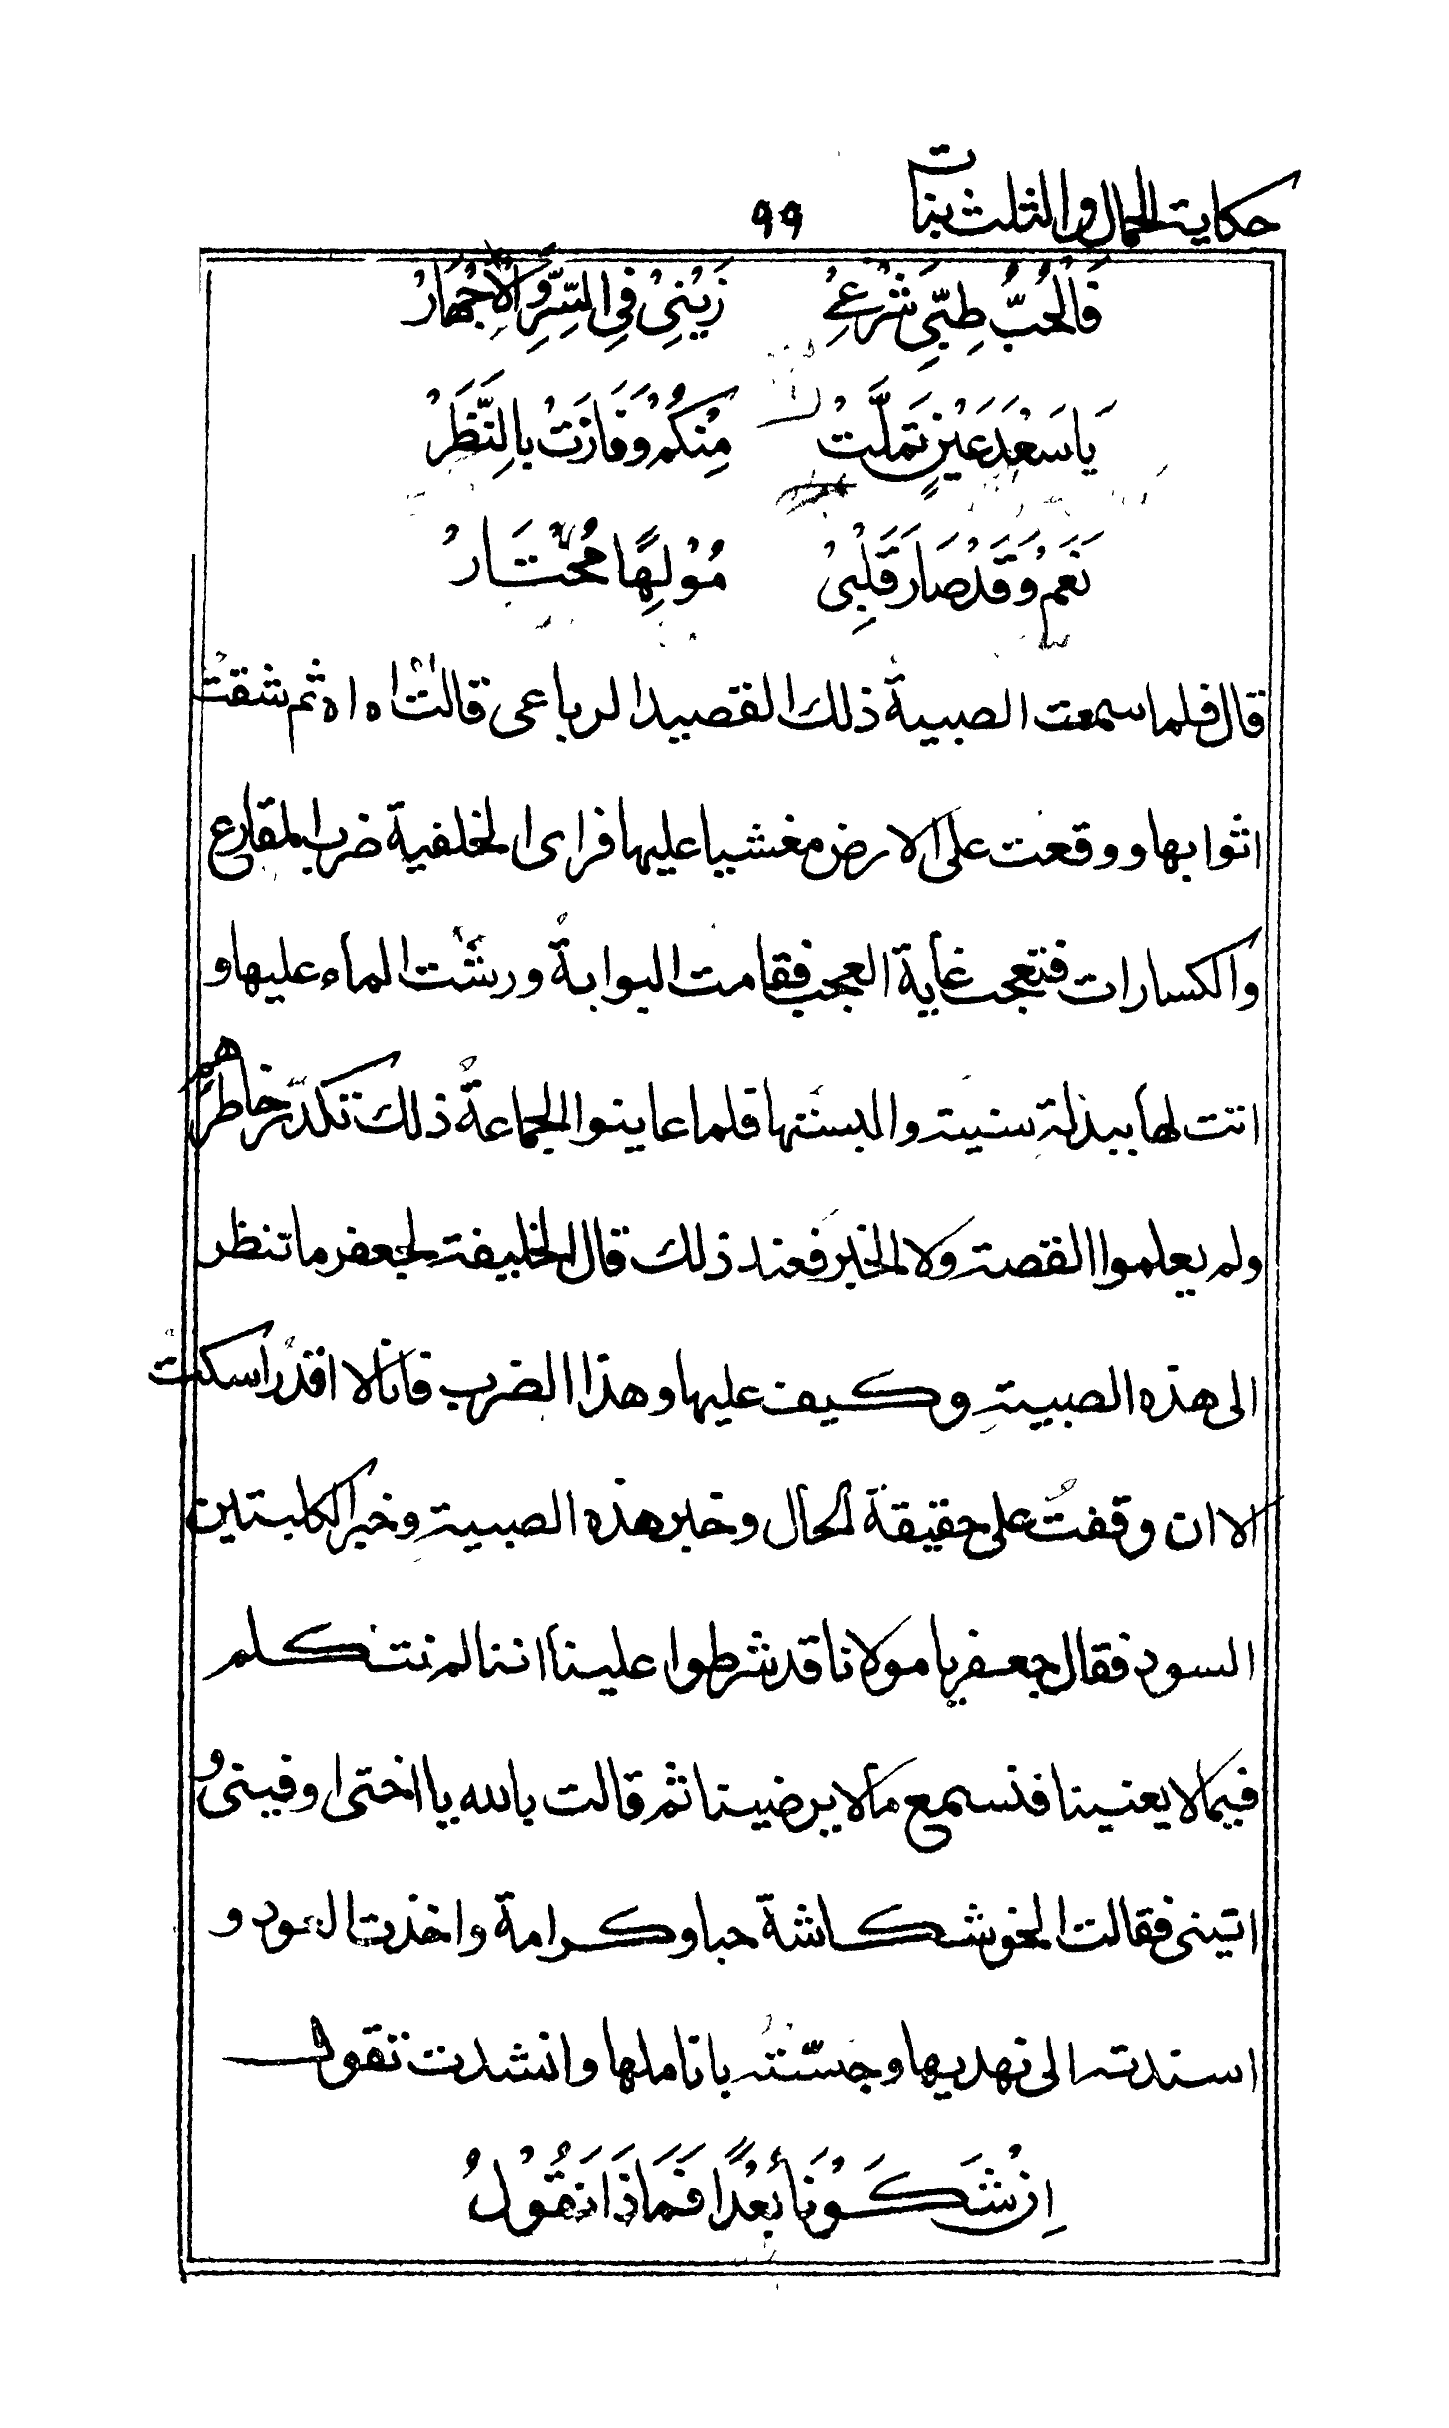 حكاية الحمال والثلث بنات
٩٩
فَالْحُبُّ طِبِّي شَرْعِيْ زَيْنِيْ فِي السِّرِّ وَالْاِجْهَارْ
يَا سَعْدَ عَيْنٍ تَمَلَّتْ مِنْكُمْ وَفَازَتْ بِالنَّظَرْ
نَعَمْ وَقَدْ صَارَ قَلْبِيْ مُوْلِهًا مُحْتَارْ
قال فلما سمعت الصبية ذلك القصيد الرباعى قالت اه اه ثم شقت
اثوابها ووقعت على الارض مغشيا عليها فراى الخلفية ضرب المقارع
والكسارات فتعجب غاية العجب فقامت البوابة ورشت الماء عليها و
اتت لها ببذلة سنية والبستها فلما عاينوا الجماعة ذلك تكدّر خاطرهم
ولم يعلموا القصة ولا الخبر فعند ذلك قال الخليفة لجعفر ما تنظر
الى هذه الصبية وكيف عليها وهذا الضرب فانا لا اقدر اسكت
الا ان وقفت على حقيقة الحال وخبر هذه الصبية وخبر الكلبتين
السود فقال جعفر يا مولانا قد شرطوا علينا اننا لم نتكلم
فيما لا يعنينا فنسمع ما لا يرضينا ثم قالت بالله يا اختى اوفينى و
اتينى فقالت الخوشكاشة حبا وكرامة واخذت العود و
اسندته الى نهديها وجسّته باناملها وانشدت تقول
اِنْ شَكَوْنَا بُعْدًا فَمَاذَا نَقُوْلُ